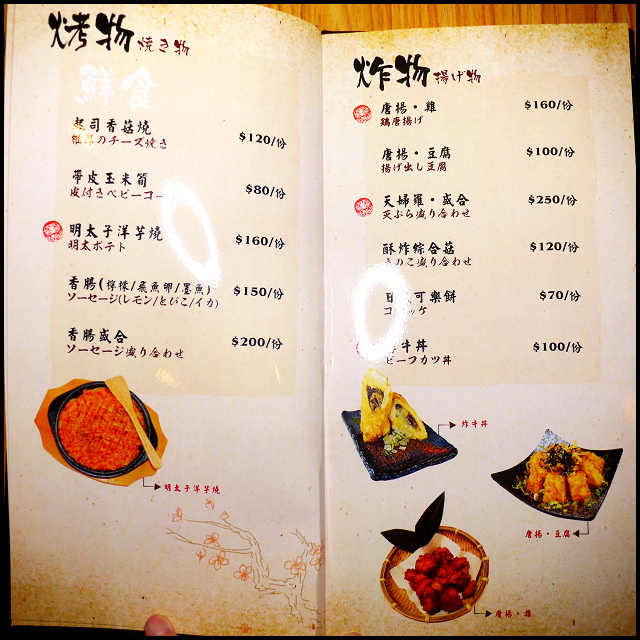 烤物 焼き物
食鮮
起司香菇燒 $120/份
椎茸のチーズ焼き
帶皮玉米筍 $80/份
皮付きベビーコー
明太子洋芋燒 $160/份
明太ポテト
香腸(檸檬/飛魚卵/墨魚) $150/份
ソーセージ(レモン/とびこ/イカ)
香腸盛合 $200/份
ソーセージ盛り合わせ
明太子洋芋燒
炸物 揚げ物
唐揚・雞 $160/份
鶏唐揚げ
唐揚・豆腐 $100/份
揚げ出し豆腐
天婦羅・盛合 $250/份
天ぷら盛り合わせ
酥炸綜合菇 $120/份
きのこ盛り合わせ
日式可樂餅 $70/份
コロッケ
炸牛丼 $100/份
ビーフカツ丼
炸牛丼
唐揚・豆腐
唐揚・雞